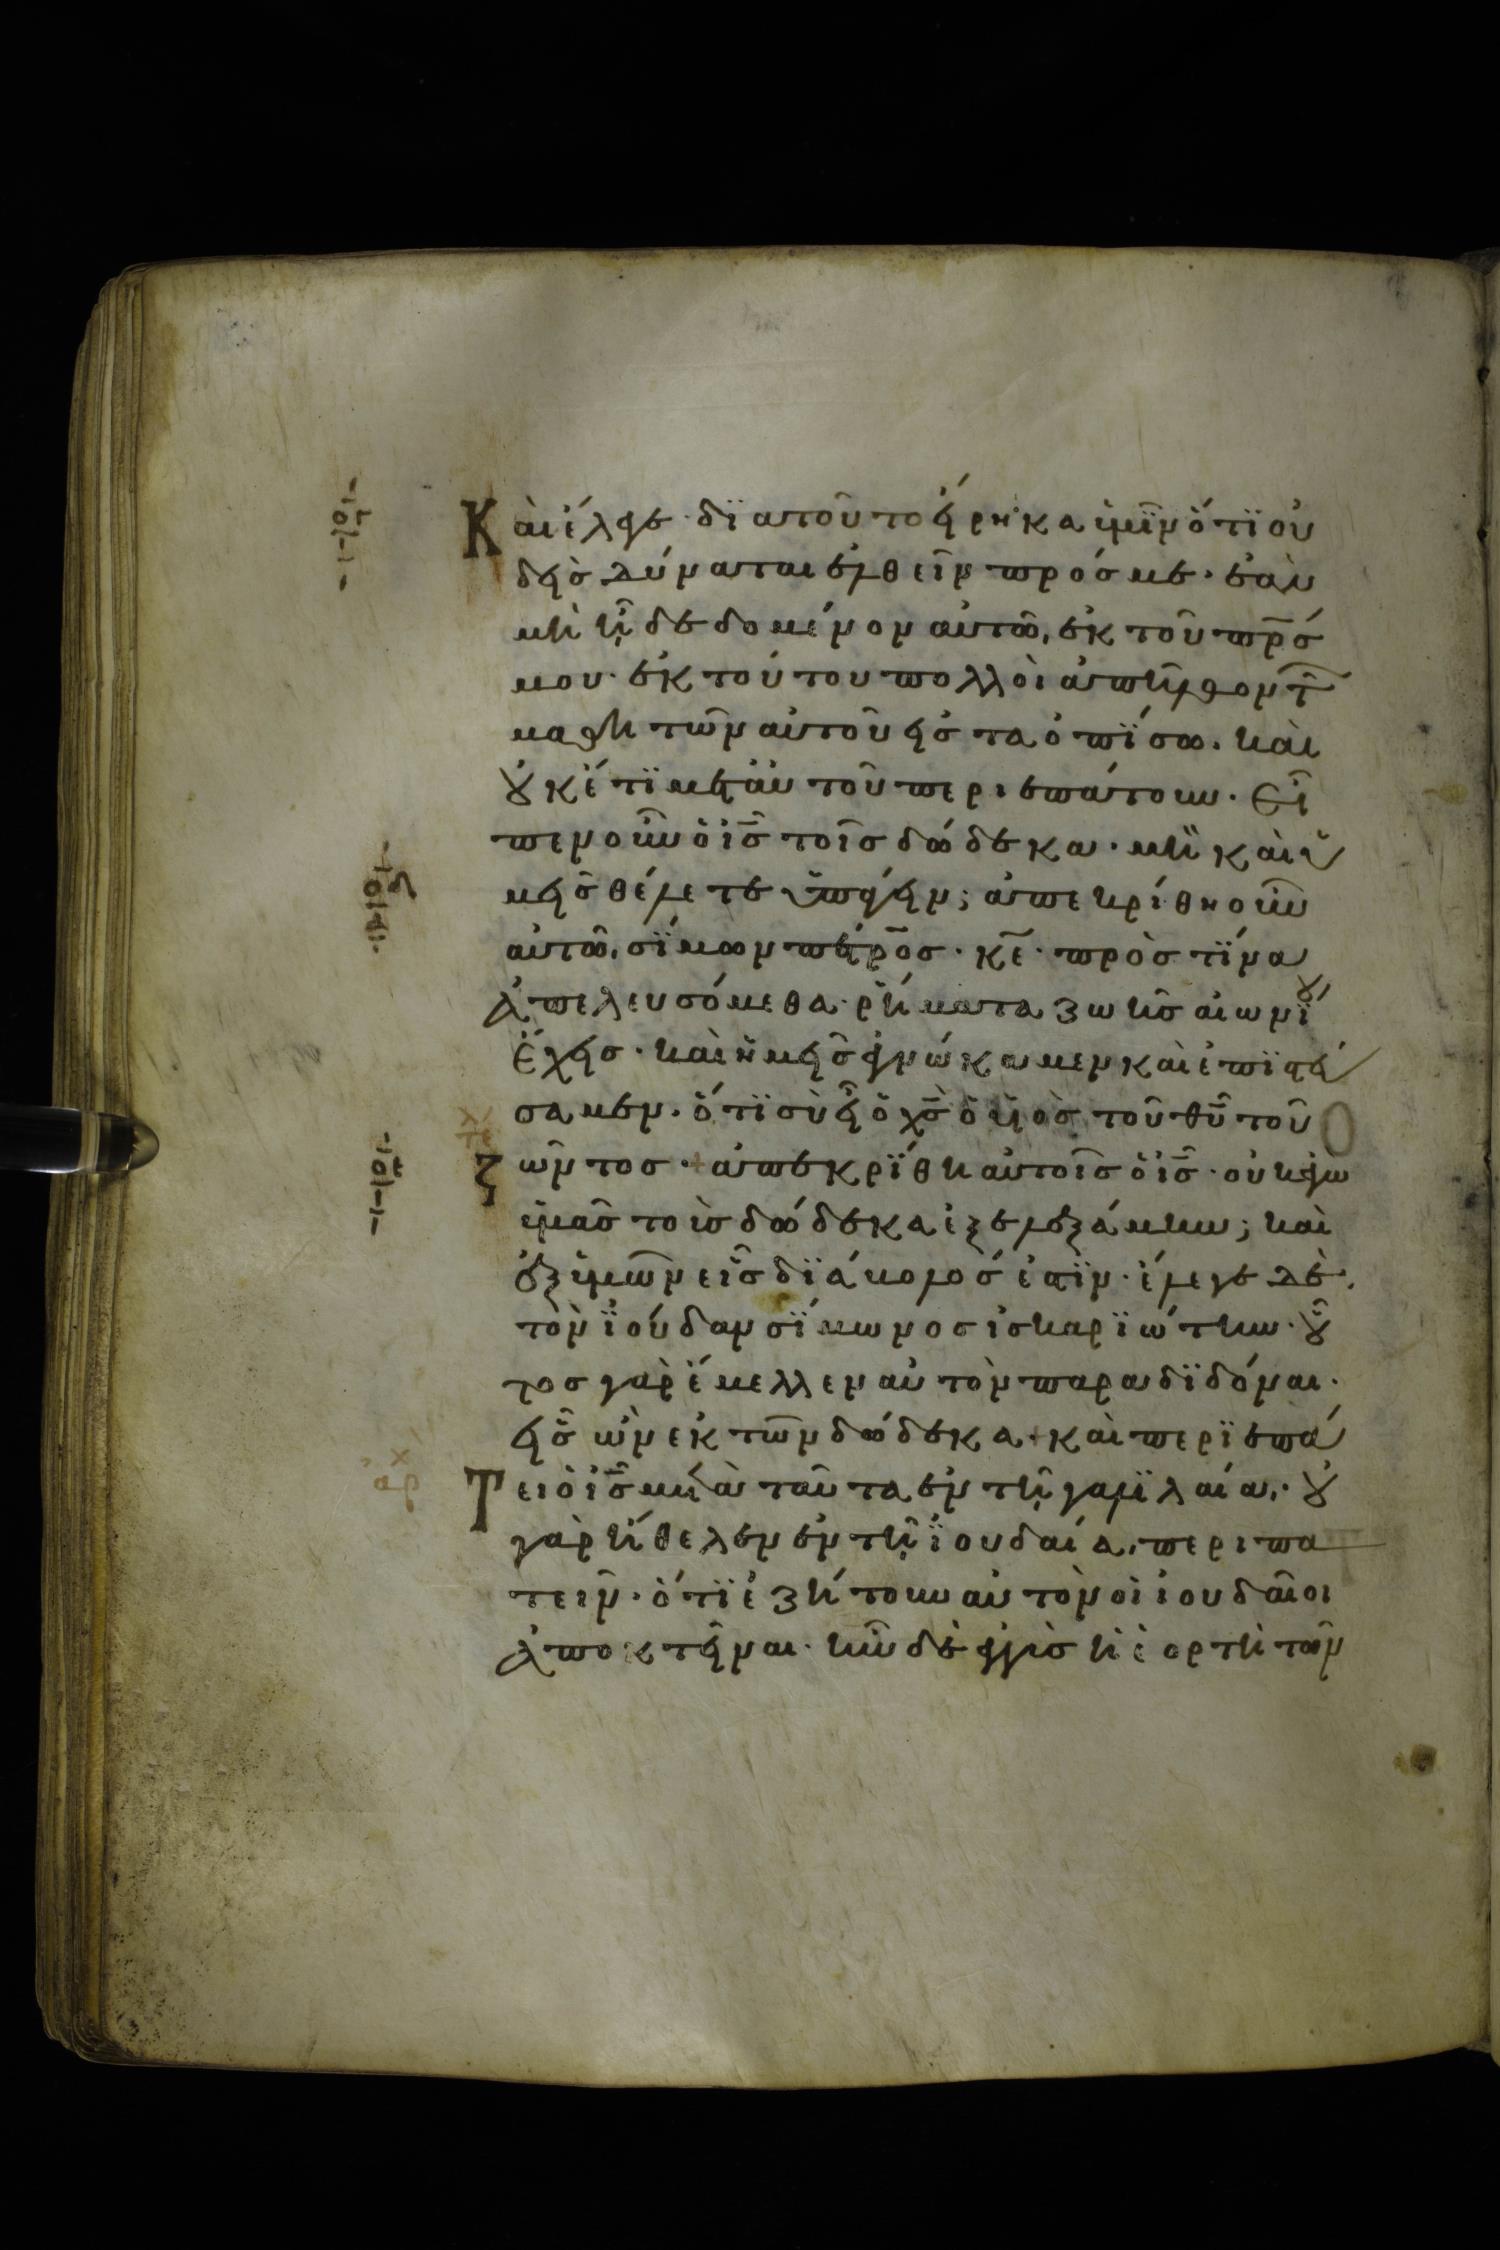 Καὶ ἔλεγε· δϊατοῦτο εἴρηκα ὑμῖν ὅτϊ οὐ
δεὶς δύναται ἐλθεῖν πρός με· ἐὰν
μὴ ἦ δεδομένον αὐτῶ, ἐκ τοῦ πρ̅ς
μου· ἐκ τούτου πολλοὶ ἀπῆλθον τ̅
μαθητῶν αὐτοῦ εἰς τα ὀπΐσω. καὶ
ȣκέτϊ μετ αὐτοῦ περιεπάτουν. Εἶ
πεν οῦν ὁ ι̅ς τοῖς δώδεκα· μὴ καὶ ὑ
μεῖς θέλετε ὑπάγειν; ἀπεκρίθη οῦν
αὐτῶ, σΐμων πέτρος· κ̅ε· πρὸς τΐνα
ἀπελευσόμεθα· ῥήματα ζωῆς αἰωνΐȣ
ἔχεις· καὶ ἡμεῖς ἐγνώκαμεν καὶ ἐπϊστεύ
σαμεν. ὅτϊ σὺ εἶ ὁ χ̅ς ὁ υἱὸς τοῦ θ̅υ τοῦ
ζῶντος·+ ἀπεκρΐθη αὐτοῖς ὁ ι̅ς· οὐκ ἐγω
ὑμᾶς τοὺς δώδεκα ἐξελεξάμην; καὶ
ἐξ ὑμῶν εἷς δϊάβολός ἐστϊν· ἔλεγε δὲ,
τὸν ϊούδαν σΐμωνος ἰσκαρϊώτην· ȣ
τος γὰρ ἔμελλεν αὐτὸν παραδϊδόναι·
εἷς ὢν ἐκ τῶν δώδεκα·+ καὶ περϊεπά
Τει ὁ ι̅ς μετὰ ταῦτα ἐν τῆ γαλϊλαία,· ȣ
γὰρ ἤθελεν ἐν τῆ ϊουδαία, περιπα
τεῖν· ὅτϊ ἐζήτουν αὐτὸν οἱ ἰουδαῖοι
ἀποκτεῖναι· ἦν δὲ ἐγγὺς ἡ ἑορτὴ τῶν